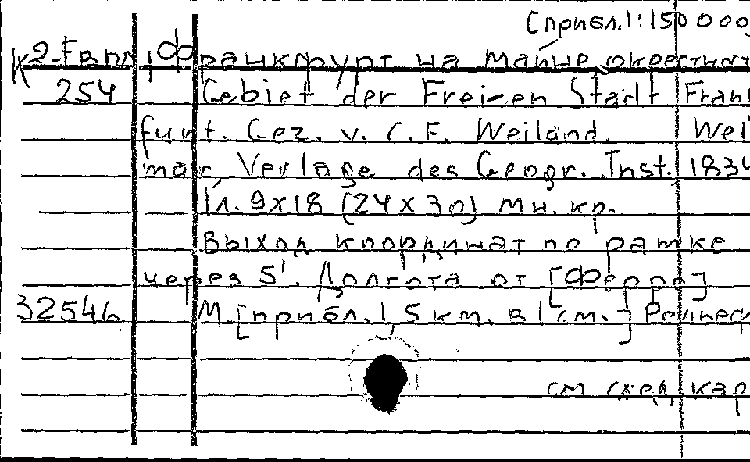 [прибл. 1:150 000
К 2-Евпл. Франкфурт на Майне окрестност
254 Gebiet der Freien Stadt Frank
furt. Gez. v. C. F. Weiland. Wei
mar, Verlage des Geogr. Inst. 1834
1л. 9х18 (24х30) мн. кр.
Выход координат по рамке
через 5'. Долгота от [Ферро]
32546 М. [прибл. 1,5 км. в 1 см.] Рельеф
см след кар